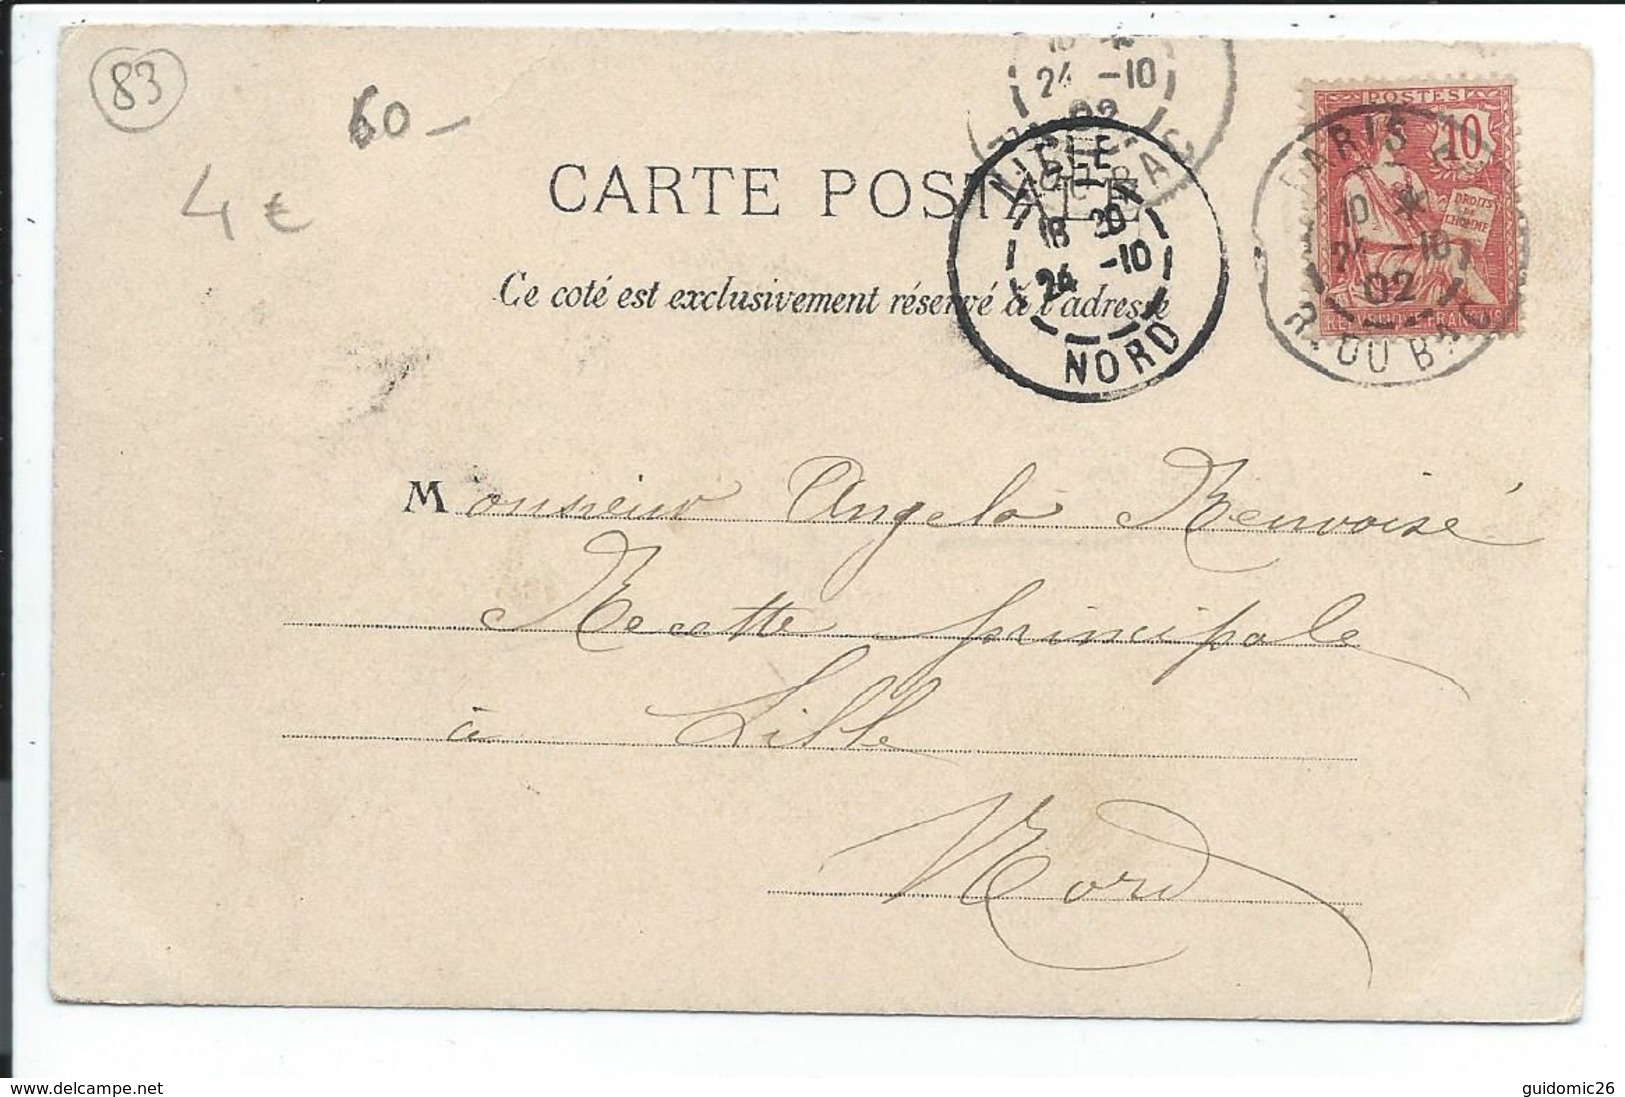 83
60-
4 €
CARTE POSTALE
Ce coté est exclusivement réservé à l'adresse
24 -10
02
LILLE
18 30
24 -10
NORD
POSTES
10
DROITS
DE
L'HOMME
PARIS
10 *
24 -10
02
R. DU BAC
Monsieur Angelo Renvoisé
Recette principale
à Lille
Nord
www.delcampe.net
guidomic26